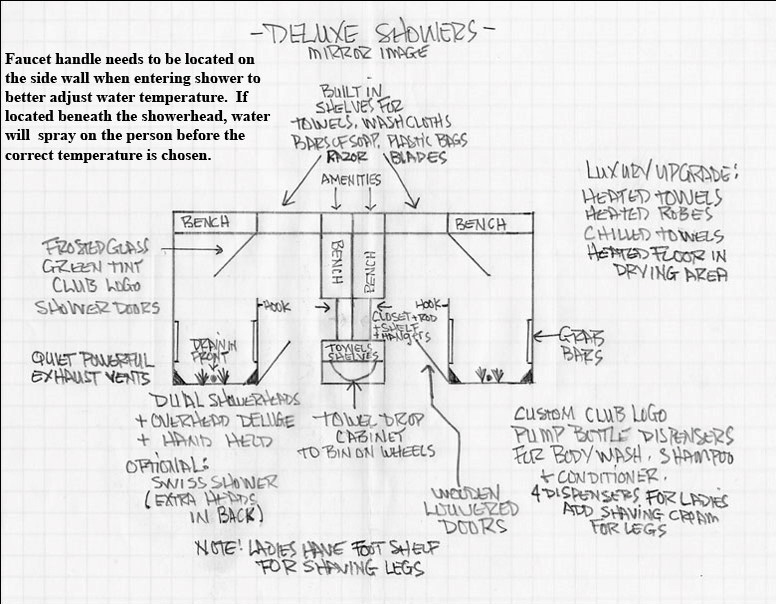 -DELUXE SHOWERS-
MIRROR IMAGE
Faucet handle needs to be located on
the side wall when entering shower to
better adjust water temperature. If
located beneath the showerhead, water
will spray on the person before the
correct temperature is chosen.
BUILT IN
SHELVES FOR
TOWELS, WASHCLOTHS
BARS OF SOAP, PLASTIC BAGS
RAZOR BLADES
AMENITIES
LUXURY UPGRADE:
HEATED TOWELS
HEATED ROBES
CHILLED TOWELS
HEATED FLOOR IN
DRYING AREA
BENCH
BENCH
BENCH
BENCH
FROSTED GLASS
GREEN TINT
CLUB LOGO
SHOWER DOORS
HOOK
HOOK
CLOSET + ROD
+ SHELF
+ HANGERS
DRAIN IN
FRONT
TOWELS
SHELVES
GRAB
BARS
QUIET POWERFUL
EXHAUST VENTS
DUAL SHOWERHEADS
+ OVERHEAD DELUGE
+ HAND HELD
OPTIONAL:
SWISS SHOWER
(EXTRA HEADS
IN BACK)
TOWEL DROP
CABINET
TO BIN ON WHEELS
WOODEN
LOUVERED
DOORS
CUSTOM CLUB LOGO
PUMP BOTTLE DISPENSERS
FOR BODYWASH, SHAMPOO
+ CONDITIONER.
4 DISPENSERS FOR LADIES
ADD SHAVING CREAM
FOR LEGS
NOTE! LADIES HAVE FOOT SHELF
FOR SHAVING LEGS